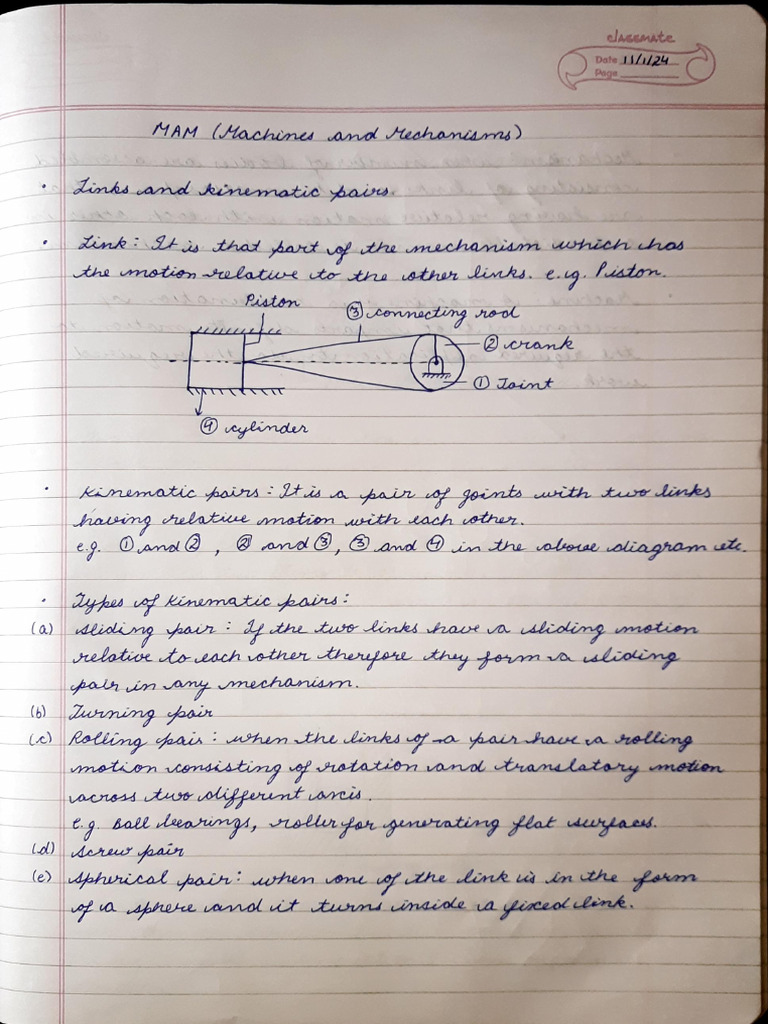 classmate
Date 11/1/24
Page
MAM (Machines and Mechanisms)
• Links and kinematic pairs.
• Link: It is that part of the mechanism which has
the motion relative to the other links. e.g. Piston.
Piston
③ connecting rod
② crank
① Joint
④ cylinder
• Kinematic pairs: It is a pair of joints with two links
having relative motion with each other.
e.g. ① and ②, ② and ③, ③ and ④ in the above diagram etc.
• Types of Kinematic pairs:
(a) Sliding pair: If the two links have a sliding motion
relative to each other therefore they form a sliding
pair in any mechanism.
(b) Turning pair
(c) Rolling pair: when the links of a pair have a rolling
motion consisting of rotation and translatory motion
across two different axis.
e.g. Ball bearings, roller for generating flat surfaces.
(d) Screw pair
(e) Spherical pair: when one of the link is in the form
of a sphere and it turns inside a fixed link.